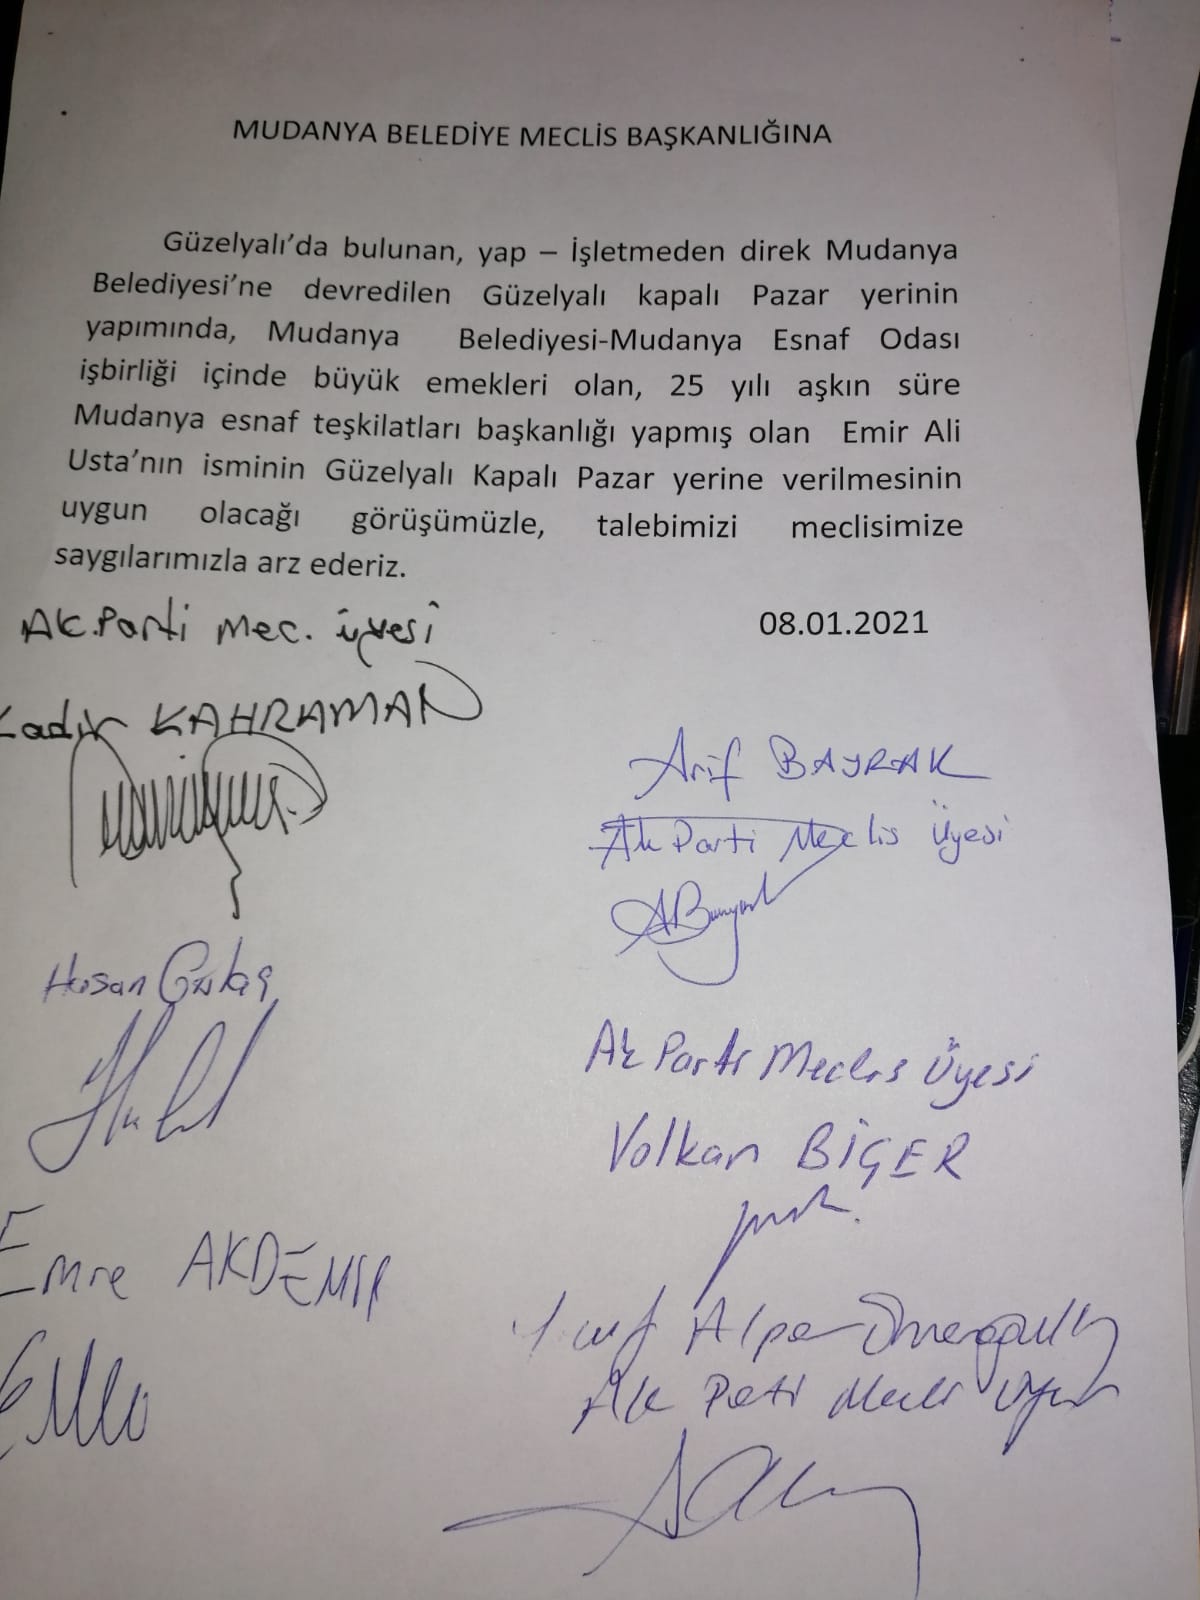 MUDANYA BELEDİYE MECLİS BAŞKANLIĞINA
Güzelyalı’da bulunan, yap – İşletmeden direk Mudanya
Belediyesi’ne devredilen Güzelyalı kapalı Pazar yerinin
yapımında, Mudanya Belediyesi-Mudanya Esnaf Odası
işbirliği içinde büyük emekleri olan, 25 yılı aşkın süre
Mudanya esnaf teşkilatları başkanlığı yapmış olan Emir Ali
Usta’nın isminin Güzelyalı Kapalı Pazar yerine verilmesinin
uygun olacağı görüşümüzle, talebimizi meclisimize
saygılarımızla arz ederiz.
08.01.2021
AK.Parti Mec. üyesi
Kadir KAHRAMAN
Arif BAYRAK
Ak Parti Meclis Üyesi
Hasan
Ak Parti Meclis Üyesi
Volkan BİÇER
Emre AKDEMİR
Alper
Ak